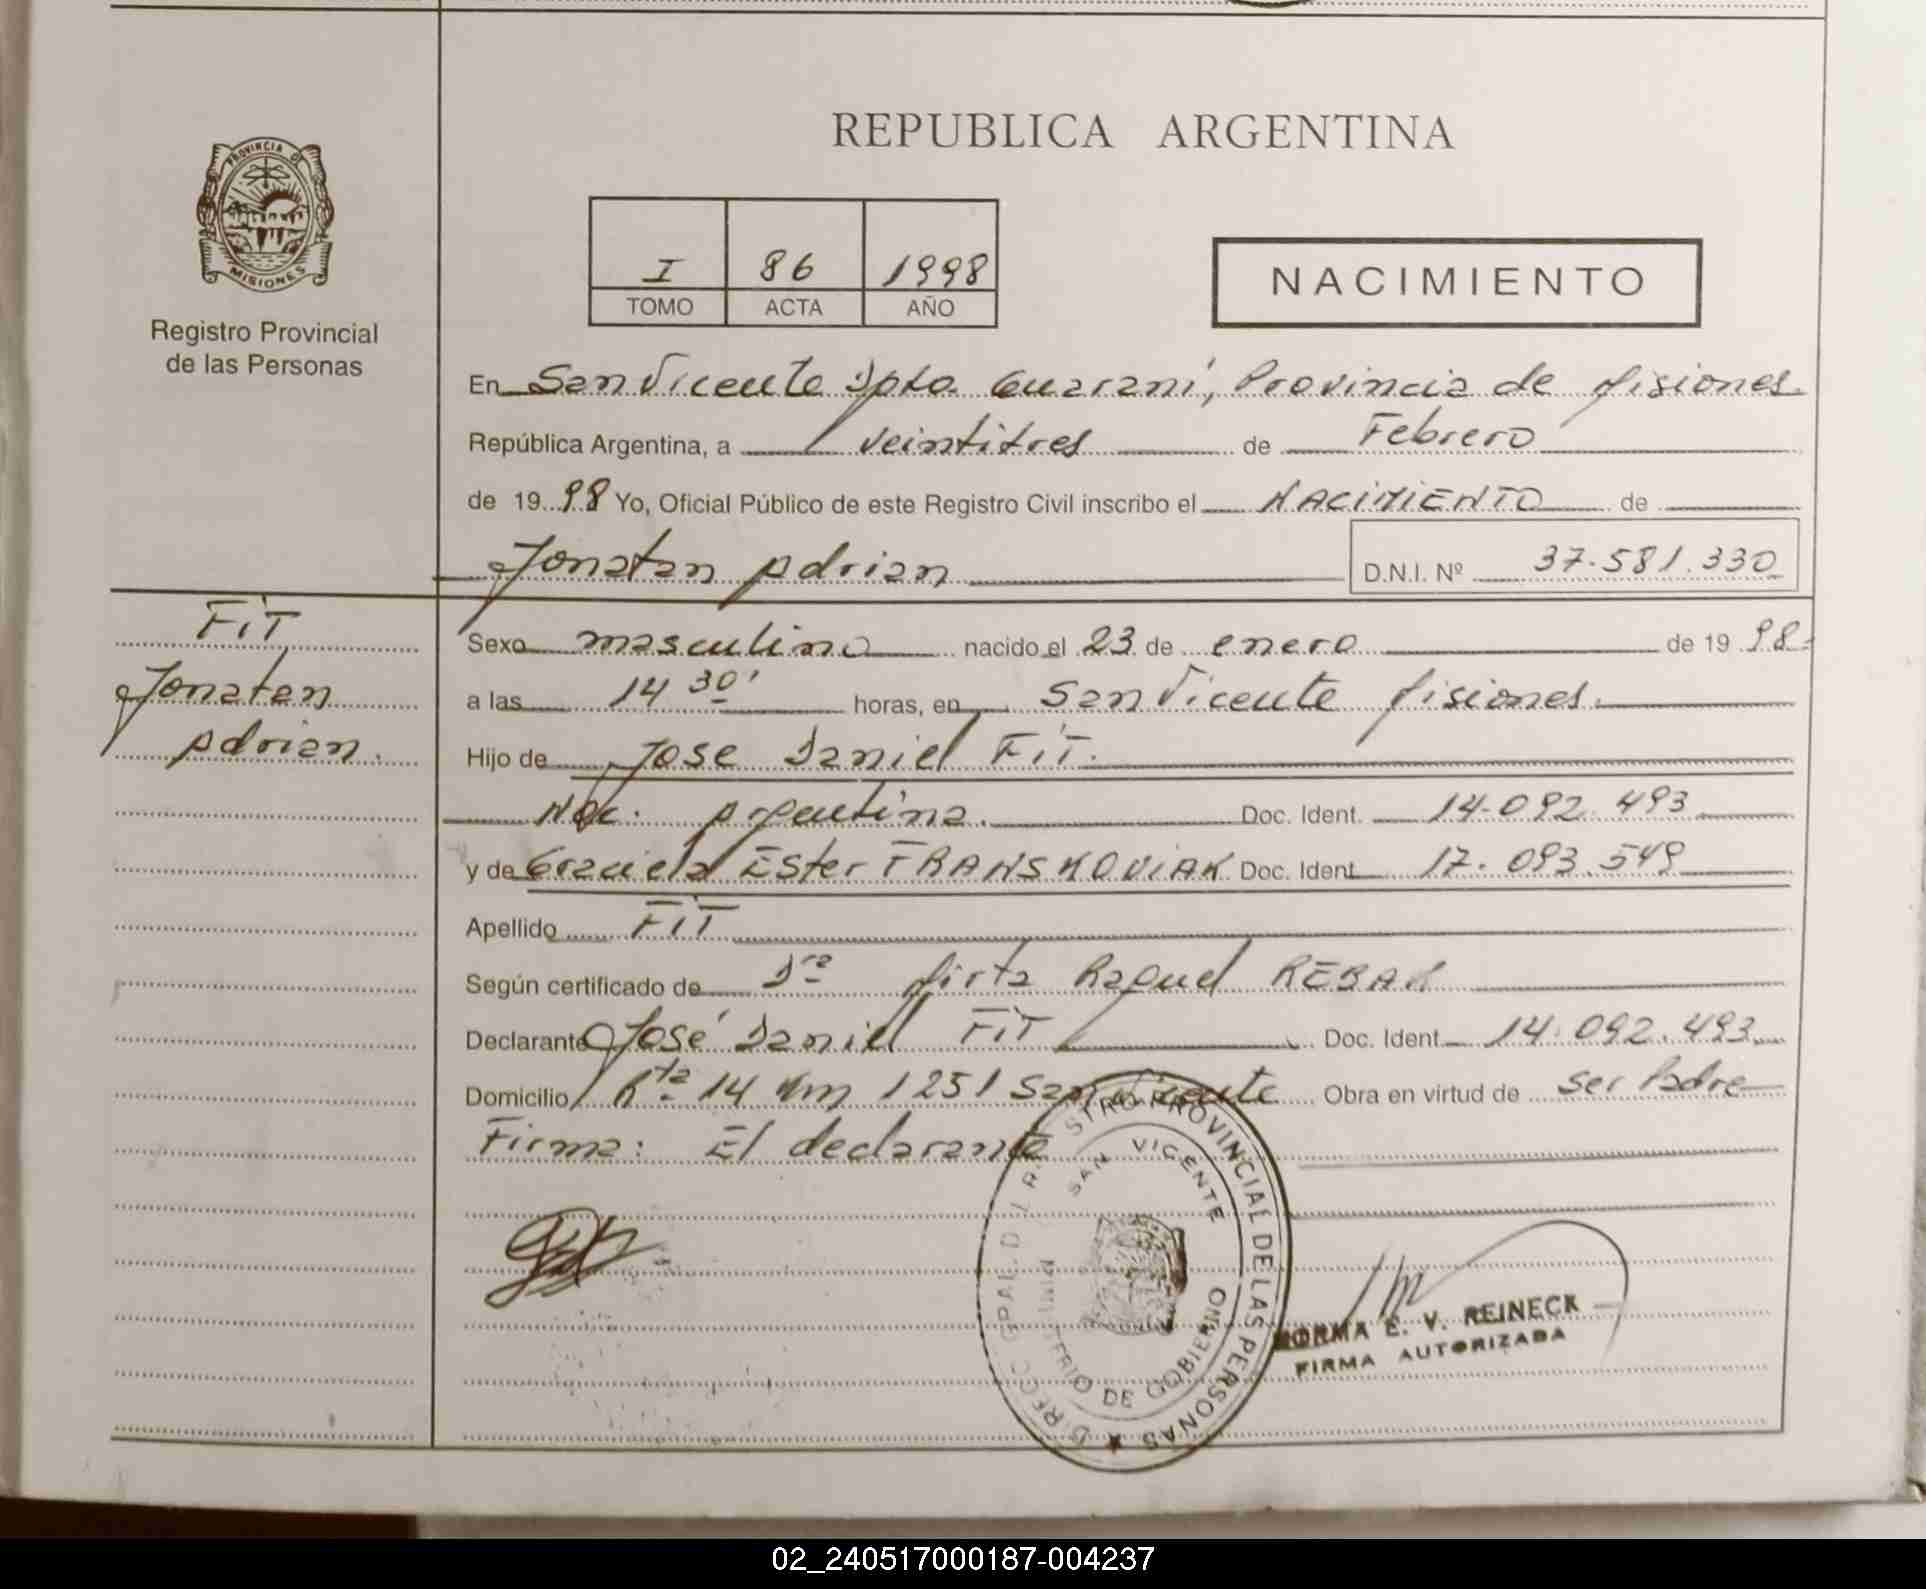 REPUBLICA ARGENTINA
PROVINCIA DE
MISIONES
Registro Provincial
de las Personas
I 86 1998
TOMO ACTA AÑO
NACIMIENTO
En San Vicente Dpto. Guaraní, Provincia de Misiones.
República Argentina, a veintitres de Febrero
de 1998 Yo, Oficial Público de este Registro Civil inscribo el NACIMIENTO de
Jonatan Adrian D.N.I. Nº 37.581.330
FiT
Jonatan
Adrian.
Sexo masculino nacido el 23 de enero de 1998-
a las 14 30' horas, en San Vicente Misiones.
Hijo de Jose Daniel FiT.
Nac. Argentina. Doc. Ident. 14.092.493
y de Graciela Ester TRANSKOViAK Doc. Ident. 17.093.549
Apellido FiT
Según certificado de Dra Mirta Raquel REBAK
Declarante José Daniel FiT Doc. Ident. 14.092.493
Domicilio Rta 14 Km 1251 San Vicente Obra en virtud de ser Padre
Firma: El declarante
DIRECC. GRAL. DEL REGISTRO PROVINCIAL DE LAS PERSONAS
SAN VICENTE
MINISTERIO DE GOBIERNO
NORMA E. V. REINECK
FIRMA AUTORIZADA
02_240517000187-004237